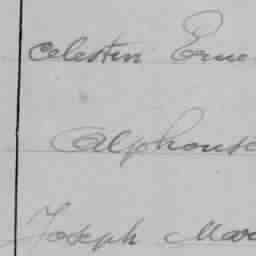 Celestin Erne
Alphonse
Joseph Mar